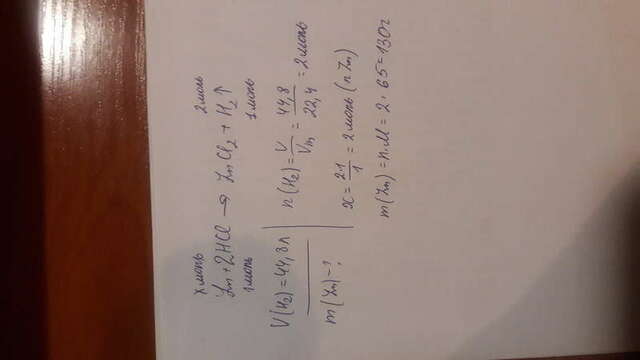 х моль 2 моль
Zn + 2HCl → ZnCl2 + H2↑
1 моль 1 моль
V(H2) = 44,8 л
m(Zn) - ?
n(H2) = V/Vm = 44,8/22,4 = 2 моль
x = 2·1/1 = 2 моль (n Zn)
m(Zn) = n·M = 2 · 65 = 130 г